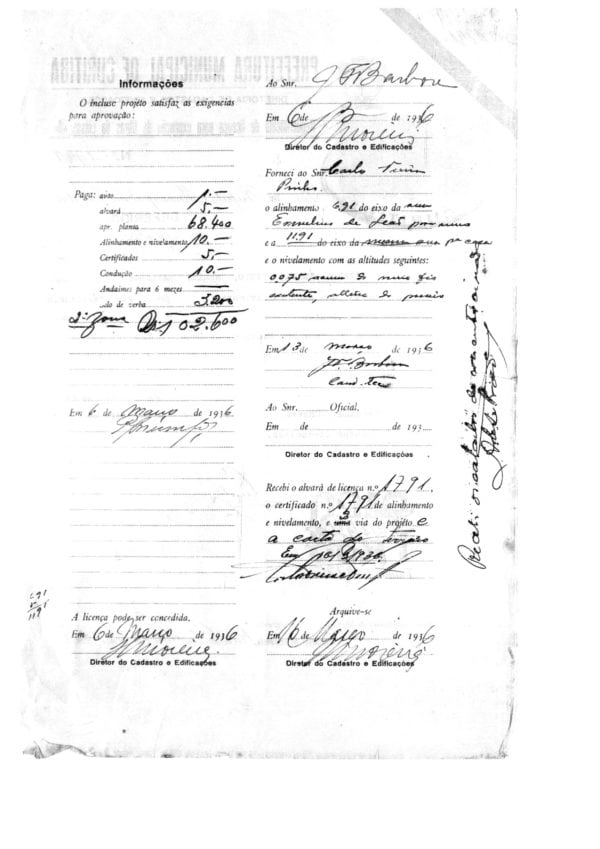 Informações
O incluso projeto satisfaz as exigencias
para aprovação:
Paga: aviso 1.—
alvará 5.—
apr. planta 68.400
Alinhamento e nivelamento 10.—
Certificados 5.—
Condução 10.—
Andaimes para 6 mezes —
selo de verba 3.200
2ª zona 102.600
Em 6 de Março de 1936
A licença pode ser concedida.
Em 6 de Março de 1936
Diretor do Cadastro e Edificações
Ao Snr. J F Barbosa
Em 6 de de 1936
Diretor do Cadastro e Edificações
Forneci ao Snr. Carlo
Pinho
o alinhamento 6.91 do eixo da rua
de Leão
e a 11.91 do eixo da mesma rua pª casa
e o nivelamento com as altitudes seguintes:
0.075 do meio fio
existente,
Em 13 de Março de 1936
Ao Snr. Oficial.
Em de de 193
Diretor do Cadastro e Edificações
Recebi o alvará de licença n.º 1791.
o certificado n.º 1791 de alinhamento
e nivelamento, e uma via do projeto e
a carta do
Em 16/3/936
Arquive-se
Em 16 de Março de 1936
Diretor do Cadastro e Edificações
PREFEITURA MUNICIPAL DE CURITIBA